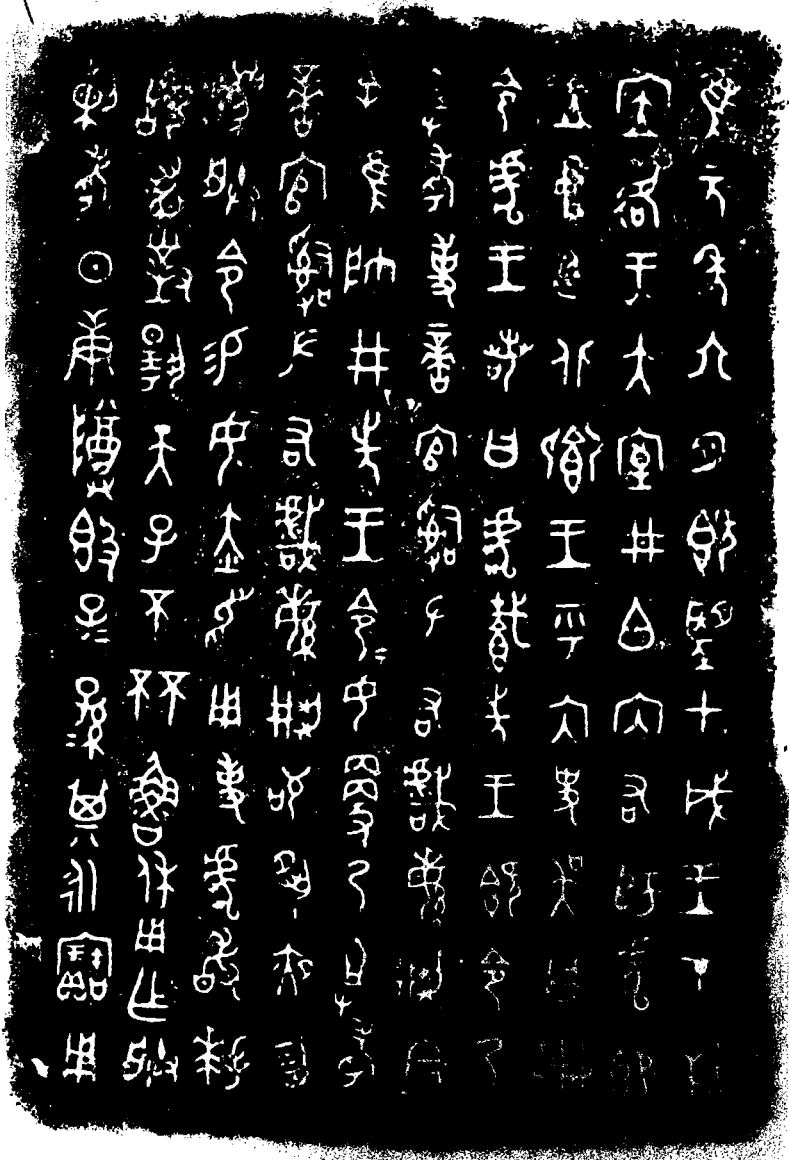 隹元年六月既望甲戌王才杜
𡨄格于大室井白內右師虎即
立中廷北鄉王乎內史吳曰冊
令虎王若曰虎載先王既令乃
祖考事啻官𤔲左右戲緐荊
今隹帥井先王令令女更乃祖考
啻官𤔲左右戲緐荊敬夙夜勿
灋朕令易女赤舄用事虎敢拜
𩒨首對揚天子不杯魯休用乍朕
剌考日庚尊簋子子孫孫其永寶用